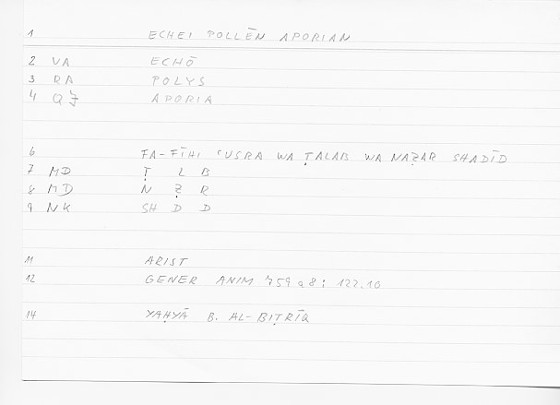 1 ECHEI POLLĒN APORIAN
2 VA ECHŌ
3 RA POLYS
4 QJ APORIA
6 FA-FĪHI ʿUSRA WA ṬALAB WA NAẒAR SHADĪD
7 MD Ṭ L B
8 MD N Ẓ R
9 NK SH D D
11 ARIST
12 GENER ANIM 759 a 8; 122.10
14 YAḤYĀ B. AL-BIṬRĪQ